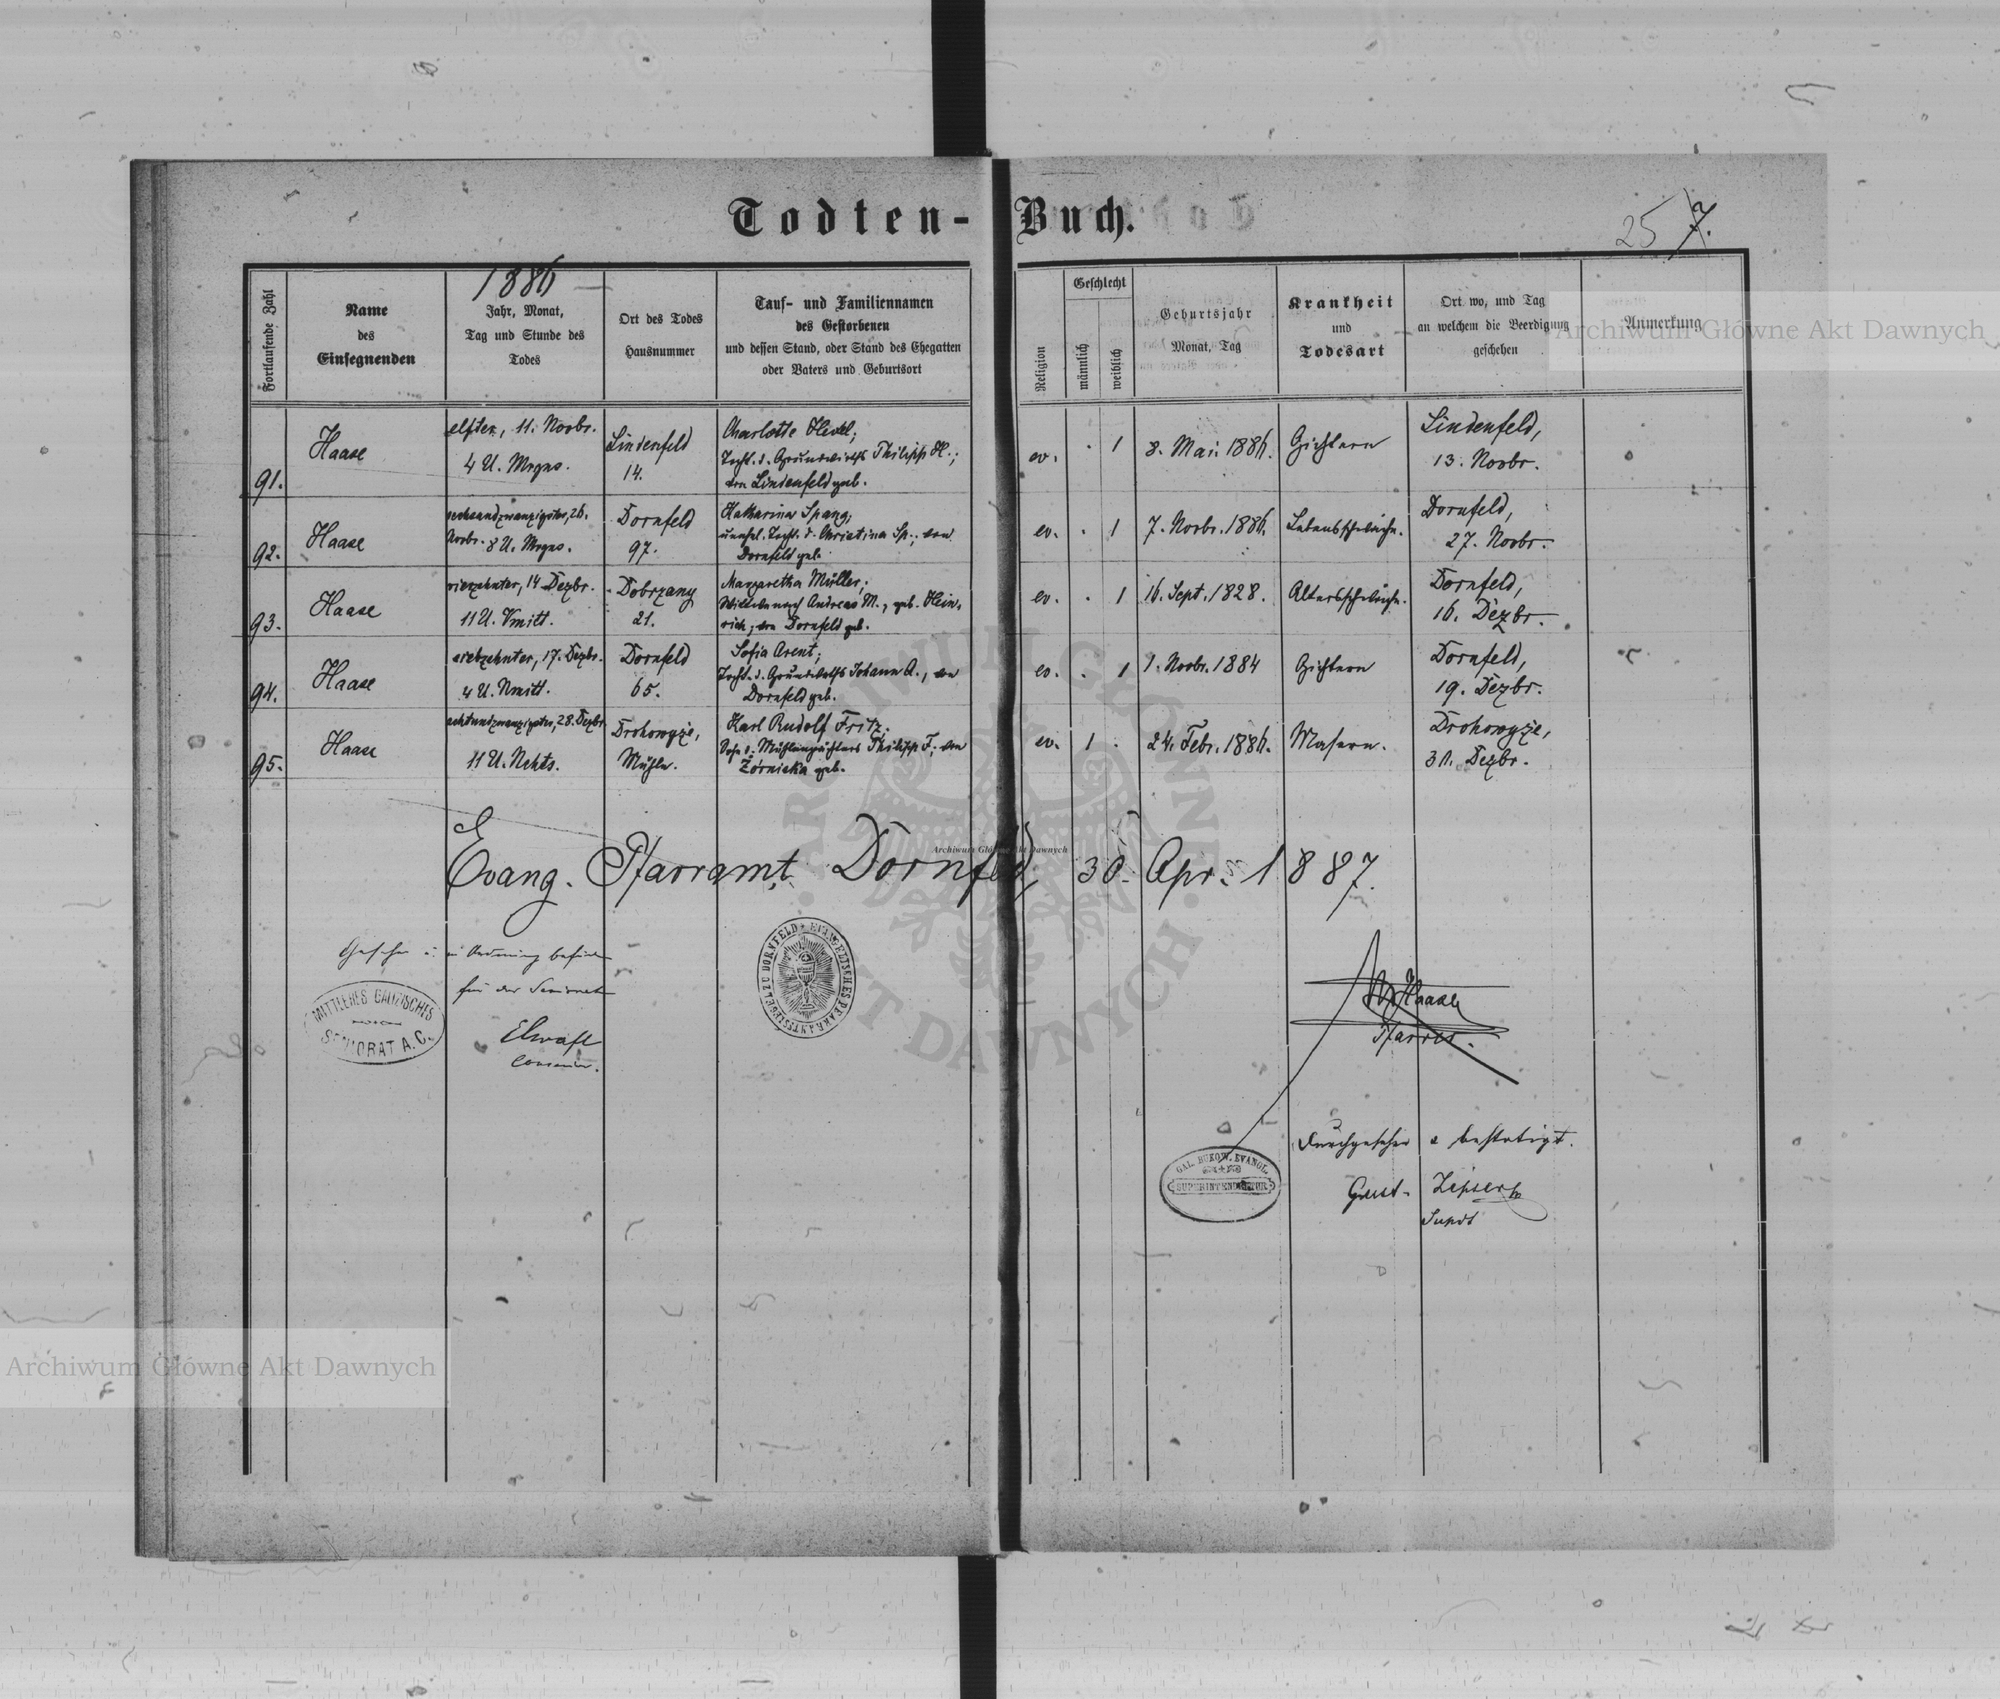 Todten-Buch.
25 7.
1886
Fortlaufende Zahl
Name
des
Einsegnenden
Jahr, Monat,
Tag und Stunde des
Todes
Ort des Todes
Hausnummer
Tauf- und Familiennamen
des Gestorbenen
und dessen Stand, oder Stand des Ehegatten
oder Vaters und Geburtsort
Religion
Geschlecht
männlich
weiblich
Geburtsjahr
Monat, Tag
Krankheit
und
Todesart
Ort wo, und Tag
an welchem die Beerdigung
geschehen
Anmerkung
Archiwum Główne Akt Dawnych
91.
Haase
elfter, 11. Novbr.
4 U. Mrgns.
Lindenfeld
14.
Charlotte
Tocht. d. Grundwirths Philipp H.;
von Lindenfeld geb.
ev. . 1
8. Mai 1886.
Gichtern
Lindenfeld,
13. Novbr.
92.
Haase
sechsundzwanzigster, 26.
Novbr. 8 U. Mrgns.
Dornfeld
97.
Katharina Spang;
unehel. Tocht. d. Christina Sp.; von
Dornfeld geb.
ev. . 1
7. Novbr. 1886.
Lebensschwäche.
Dornfeld,
27. Novbr.
93.
Haase
vierzehnter, 14 Dezbr.
11 U. Vmitt.
Dobrzany
21.
Margaretha Müller;
Wittwe nach Andreas M., geb. Hein-
rich; von Dornfeld geb.
ev. . 1
16. Sept. 1828.
Altersschwäche.
Dornfeld,
16. Dezbr.
94.
Haase
siebzehnter, 17. Dezbr.
4 U. Nmitt.
Dornfeld
65.
Sofia Arent;
Tocht. d. Grundwirths Johann A., von
Dornfeld geb.
ev. . 1
1. Novbr. 1884
Gichtern
Dornfeld,
19. Dezbr.
95.
Haase
achtundzwanzigster, 28. Dezbr.
11 U. Nchts.
Drohowyże,
Mühle.
Karl Rudolf Fritz;
Sohn d. Mühlenpächters Philipp F.; von
Zórniska geb.
ev. 1 .
24. Febr. 1886.
Masern.
Drohowyże,
30. Dezbr.
Evang. Pfarramt Dornfeld, 30. Apr. 1887.
Archiwum Główne Akt Dawnych
ARCHIWUM GŁÓWNE AKT DAWNYCH
Gesehen u. in Ordnung befunden
für das Seniorat
Consenior.
MITTLERES GALIZISCHES
SENIORAT A.C.
EVANGELISCHES PFARRAMTSSIEGEL ZU DORNFELD
Haase
Pfarrer.
Durchgesehen u bestätigt.
Gust. Zipser
Supdt
GAL. BUKOW. EVANGL.
SUPERINTENDENTUR
Archiwum Główne Akt Dawnych